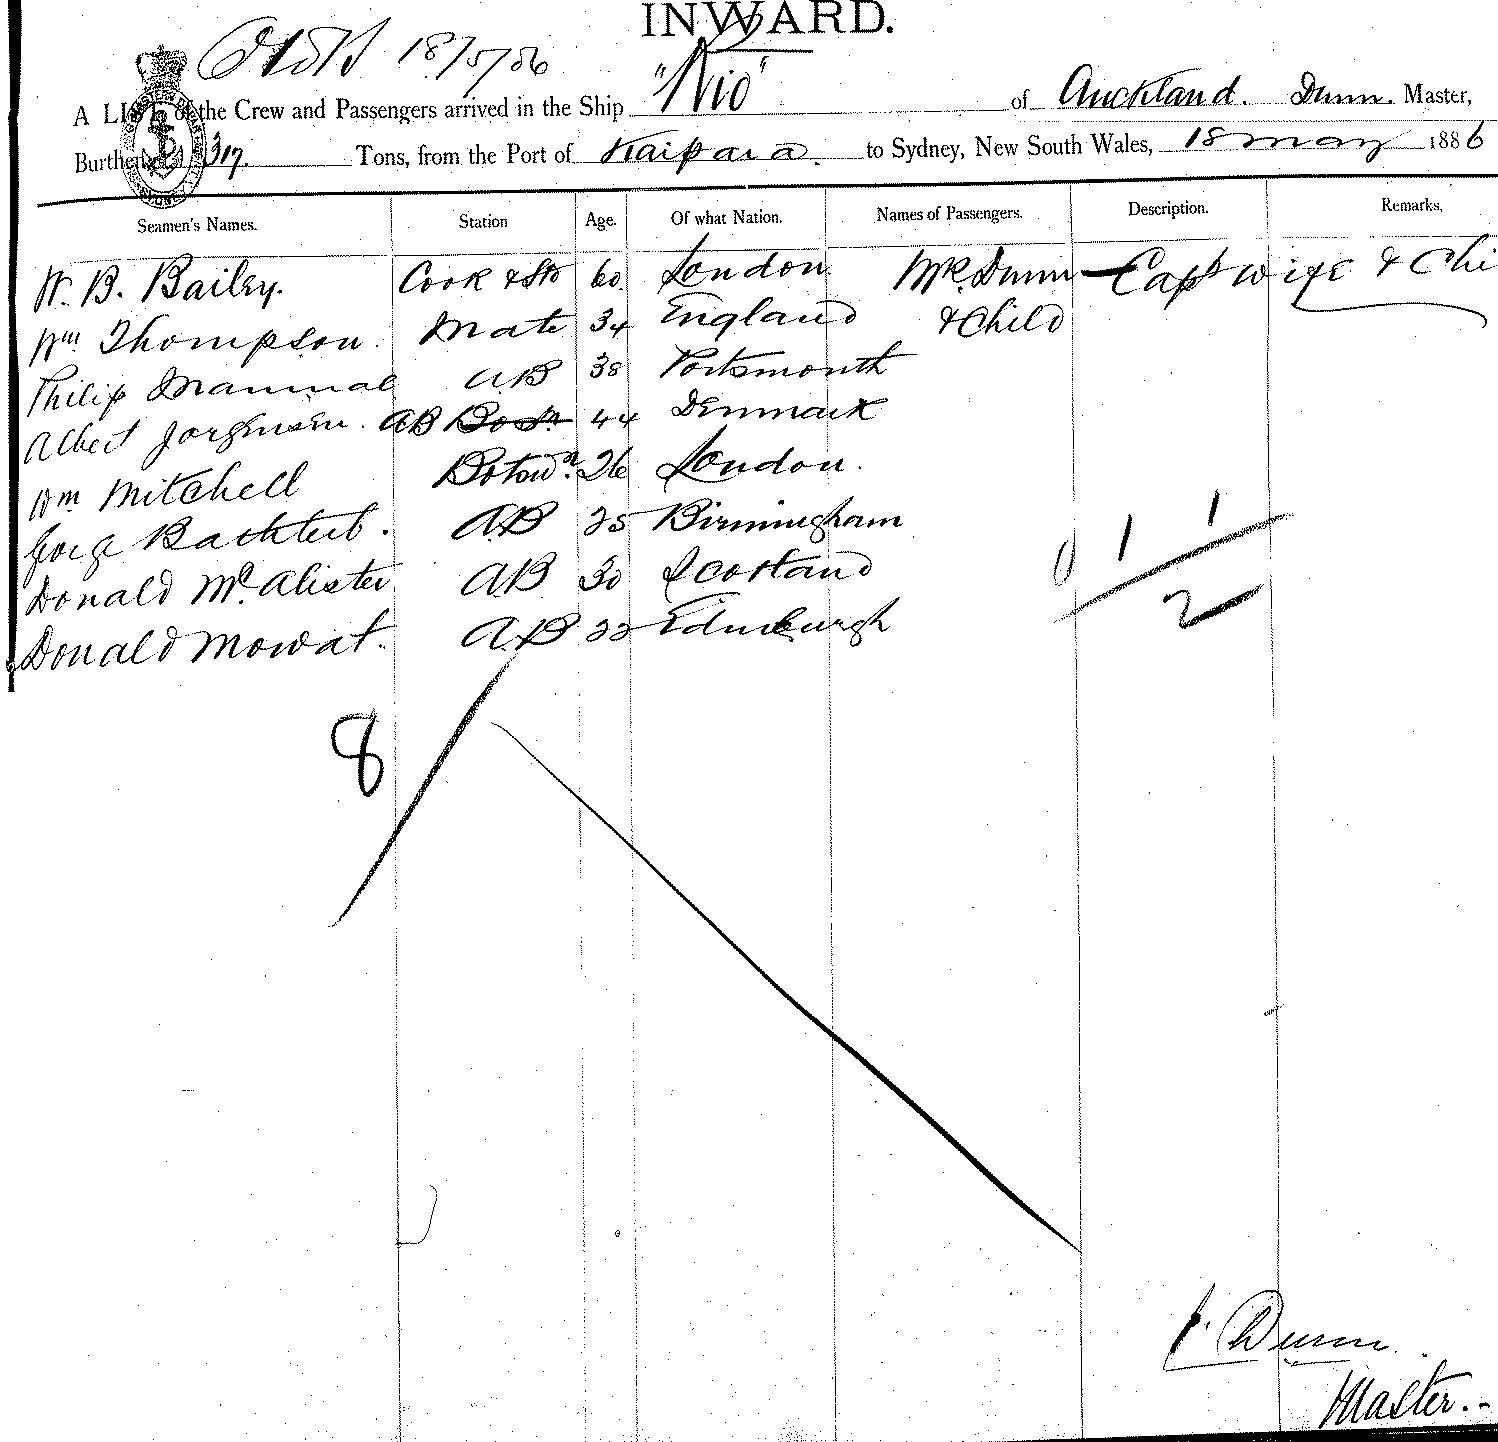 INWARD.
18/5/86
A LIST of the Crew and Passengers arrived in the Ship "Rio" of Auckland. Dunn. Master,
Burthen 317. Tons, from the Port of Kaipara. to Sydney, New South Wales, 18 may 1886
Seamen's Names. Station Age. Of what Nation. Names of Passengers. Description. Remarks.
W. B. Bailey. Cook & Std 60 London Mrs. Dunn Capt wife & Chi
Wm Thompson. Mate 34 England & Child
Philip AB 38 Portsmouth
Albert Jorgensen. AB Bosn. 44 Denmark
Wm Mitchell Botswn. 26 London.
George AB 25 Birmingham
Donald Mc.Alister AB 30 Scotland
Donald Mowat. AB 22 Edinburgh
0 1 1
2
8
J. Dunn.
Master.-